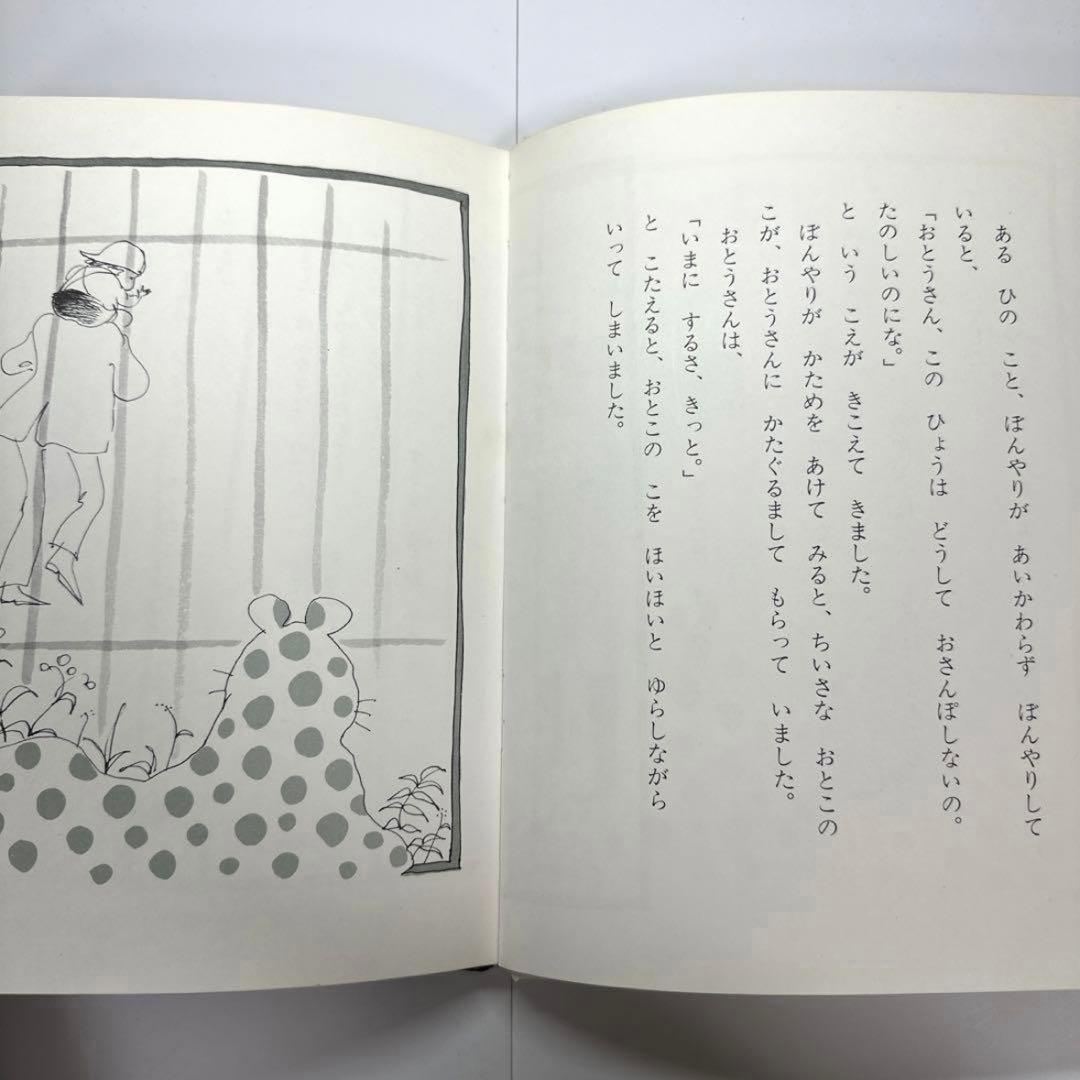 ある ひの こと、ぼんやりが あいかわらず ぼんやりして
いると、
「おとうさん、この ひょうは どうして おさんぽしないの。
たのしいのにな。」
と いう こえが きこえて きました。
ぼんやりが かためを あけて みると、ちいさな おとこの
こが、おとうさんに かたぐるまして もらって いました。
おとうさんは、
「いまに するさ、きっと。」
と こたえると、おとこの こを ほいほいと ゆらしながら
いって しまいました。